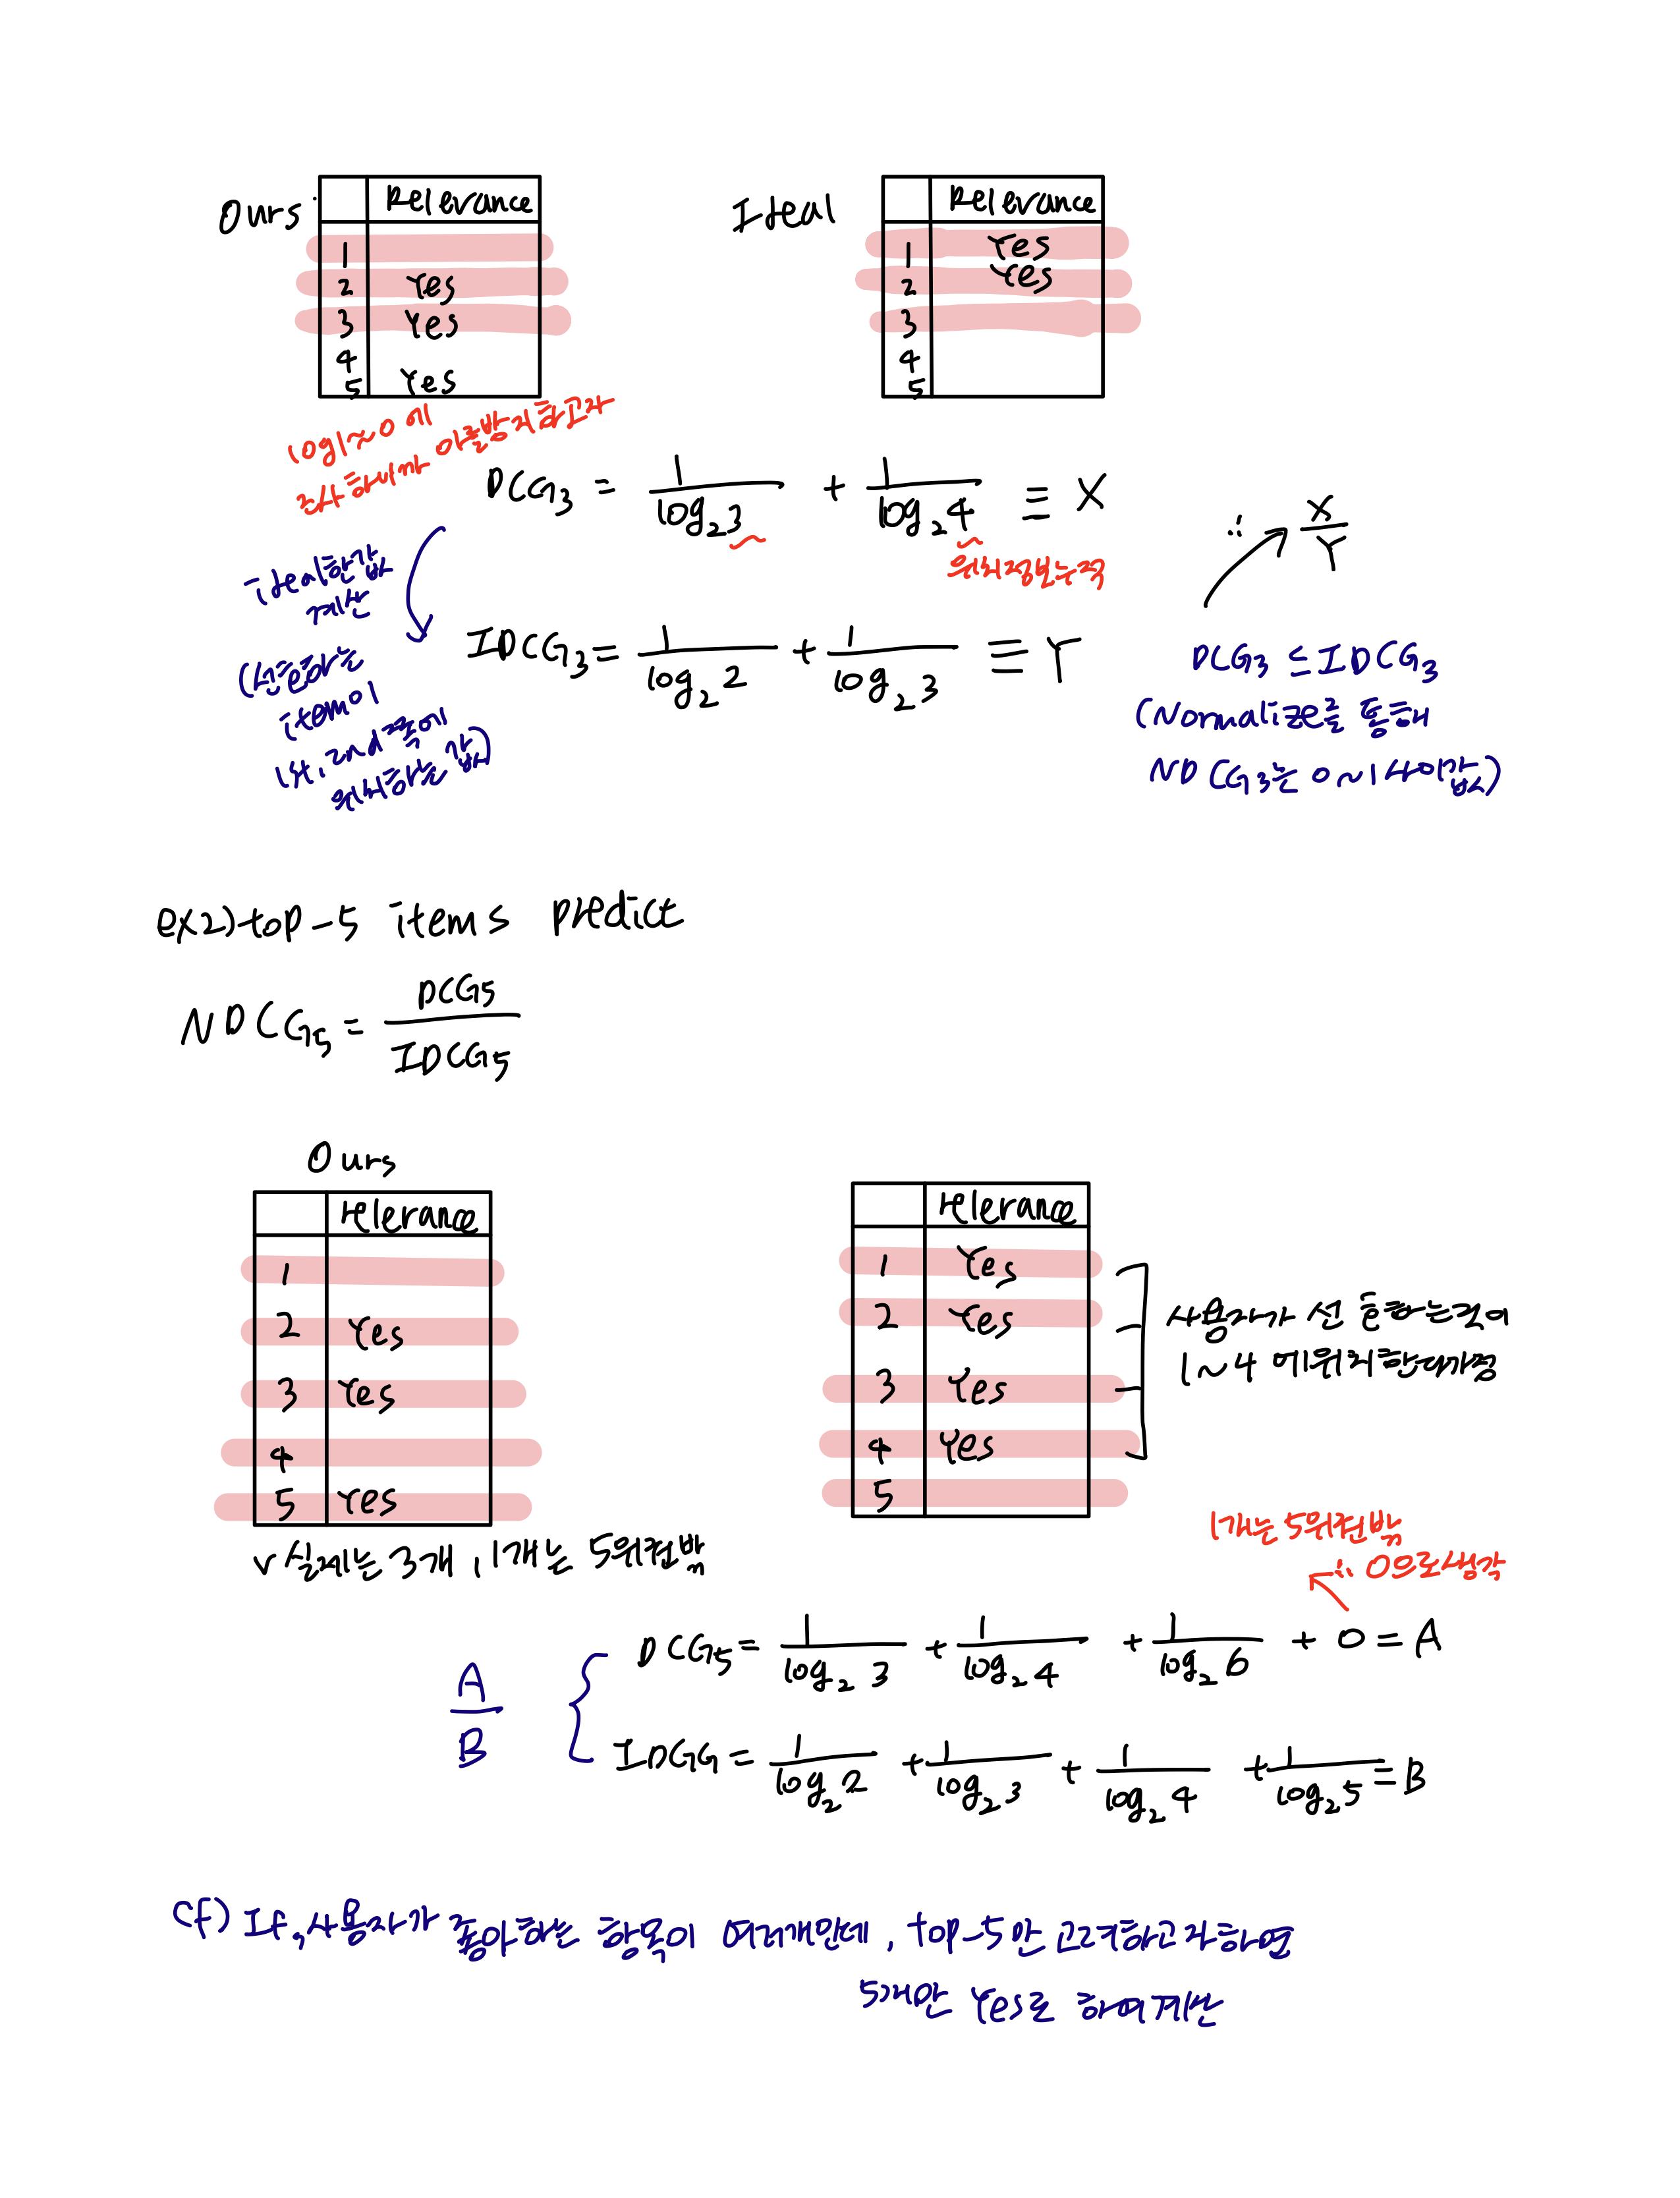 Ours
Relevance
1
2 Yes
3 Yes
4
5 Yes
Ideal
Relevance
1 Yes
2 Yes
3
4
5
log1~0 에
근사하니까 이를방지하고자
DCG₃ = 1/log₂3 + 1/log₂4 ≡ X
위치정보누적
∴ X/Y
ideal한값
계산
(선호하는
item이
1st, 2nd 쪽에
위치하는 값)
IDCG₃ = 1/log₂2 + 1/log₂3 ≡ Y
DCG₃ ≤ IDCG₃
(Normalize를 통해
NDCG₃는 0~1사이값)
ex2) top-5 items predict
NDCG₅ = DCG₅/IDCG₅
Ours
relerance
1
2 Yes
3 Yes
4
5 Yes
relerance
1 Yes
2 Yes
3 Yes
4 Yes
5
사용자가 선호하는것이
1~4 에위치한대가정
v 실제는 3개, 1개는 5위권밖
1개는 5위권밖
∴ 0으로생각
DCG₅ = 1/log₂3 + 1/log₂4 + 1/log₂6 + 0 = A
A/B
IDGG = 1/log₂2 + 1/log₂3 + 1/log₂4 + 1/log₂5 = B
cf) If, 사용자가 좋아하는 항목이 여러개인데, top-5만 고려하고자하면
5개만 Yes로 하여계산